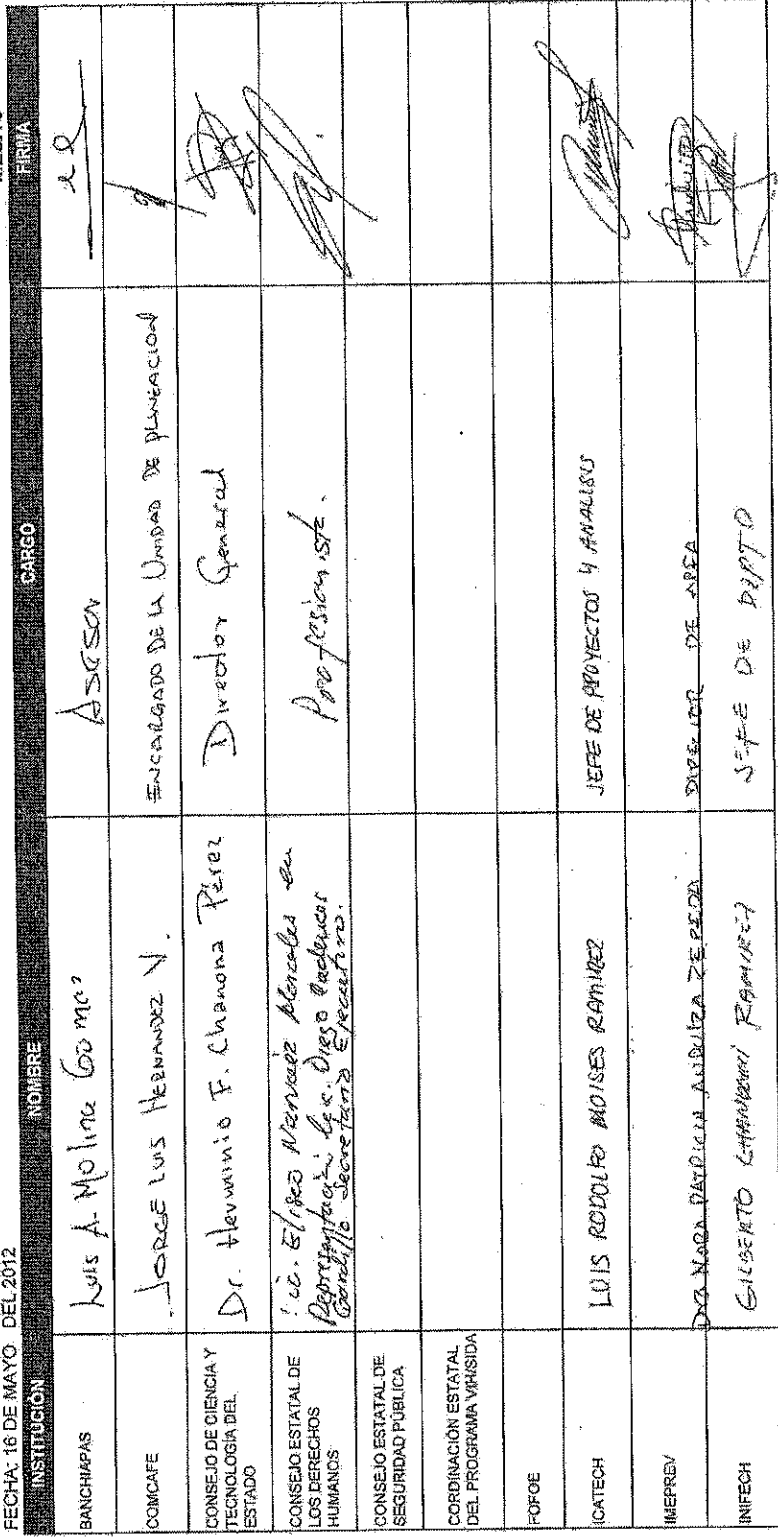 FECHA: 16 DE MAYO DEL 2012
INSTITUCIÓN NOMBRE CARGO FIRMA
BANCHIAPAS Luis A. Molina Gómez Asesor
COMCAFE JORGE LUIS HERNANDEZ V. ENCARGADO DE LA UNIDAD DE PLANEACION
CONSEJO DE CIENCIA Y
TECNOLOGÍA DEL
ESTADO
Dr. Herminio F. Chanona Pérez Director General
CONSEJO ESTATAL DE
LOS DERECHOS
HUMANOS
Lic. Eliseo Narvaez Morales en
Representación Lic. Diego Cadenas
Gordillo Secretario Ejecutivo.
Profesionista.
CONSEJO ESTATAL DE
SEGURIDAD PÚBLICA
CORDINACIÓN ESTATAL
DEL PROGRAMA VIH/SIDA
FOFOE
ICATECH LUIS RODOLFO MOISES RAMIREZ JEFE DE PROYECTOS Y ANALISIS
IMEPREV NORA PATRICIA ANDUIZA ZEPEDA DIRECTOR DE AREA
INIFECH GILBERTO RAMIREZ JEFE DE DEPTO